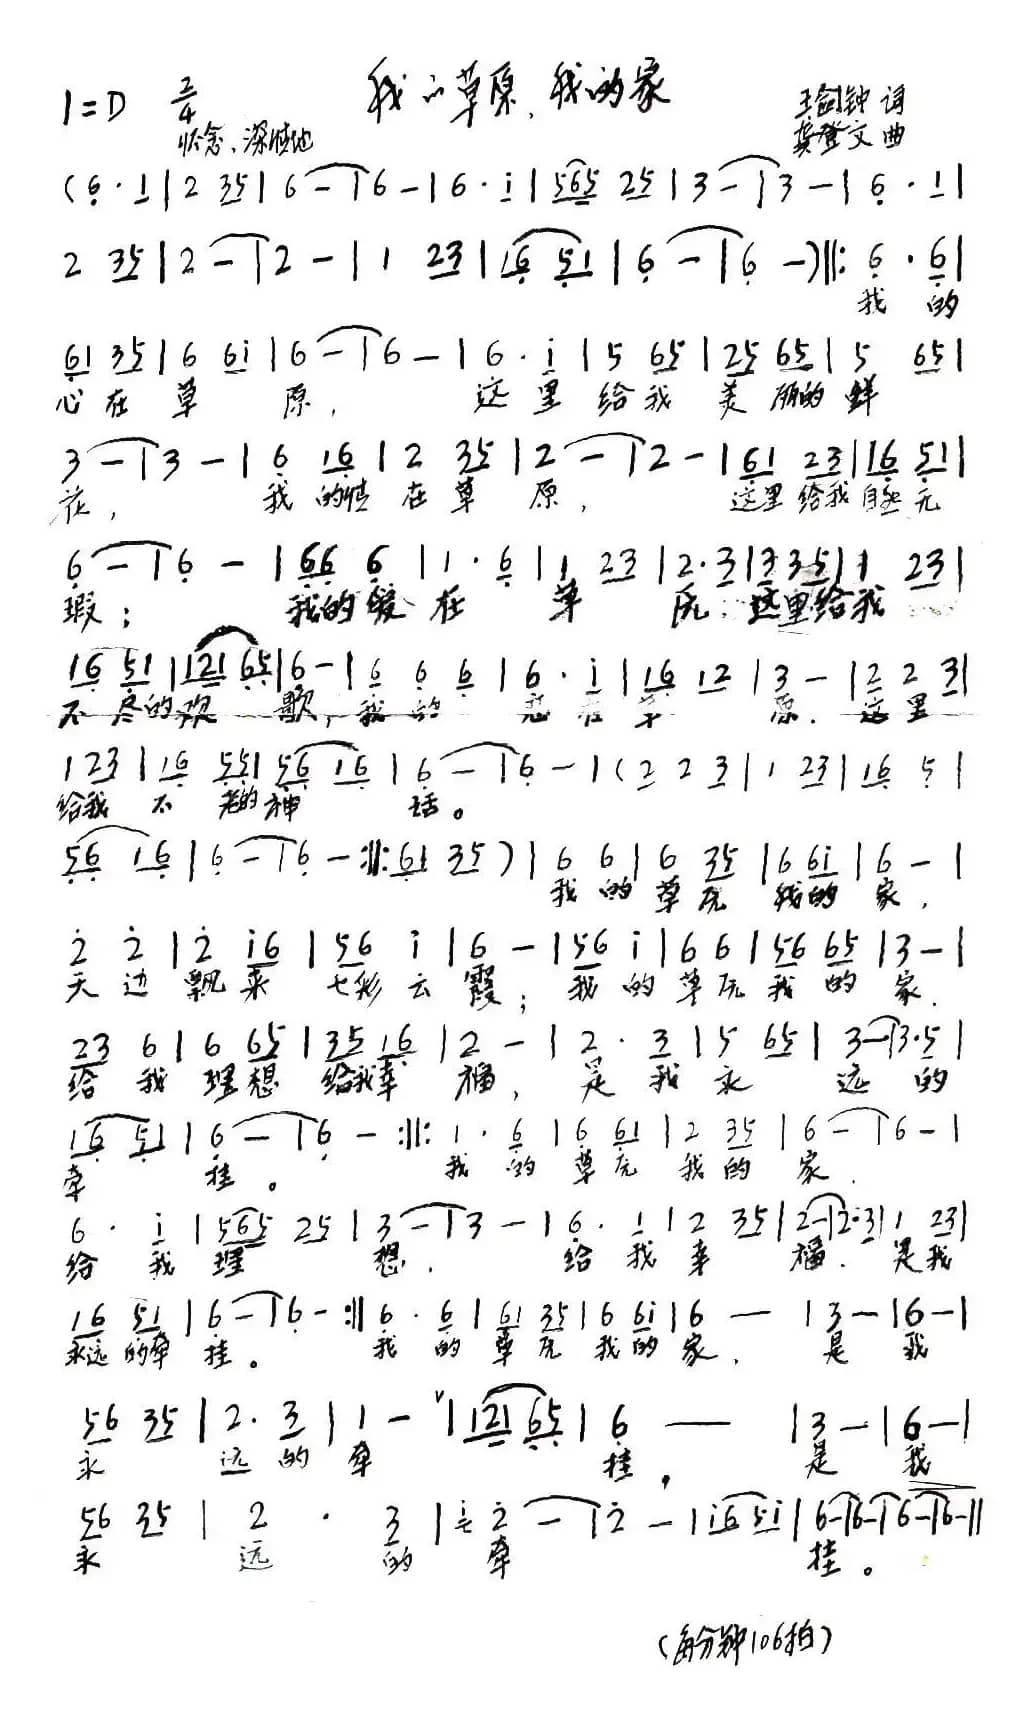 我的草原,我的家
1=D 2/4
怀念、深情地
王剑钟 词
龚登文 曲
(6 · 1 | 2 35 | 6 — | 6 — | 6 · i | 565 25 | 3 — | 3 — | 6 · 1 |
2 35 | 2 — | 2 — | 1 23 | 16 51 | 6 — | 6 —) ‖: 6 · 6 |
我 的
61 35 | 6 6i | 6 — | 6 — | 6 · i | 5 65 | 25 65 | 5 65 |
心在草 原, 这里给我美丽的鲜
3 — | 3 — | 6 16 | 2 35 | 2 — | 2 — | 61 23 | 16 51 |
花, 我的情在草原, 这里给我自无
6 — | 6 — | 66 6 | 1 · 6 | 1 23 | 2 · 3 | 3 35 | 1 23 |
瑕; 我的爱在草原,这里给我
16 51 | 121 65 | 6 — | 6 6 6 | 6 · i | 16 12 | 3 — | 2 2 3 |
不尽的欢歌,我的 在草原,这里
1 23 | 16 55 | 56 16 | 6 — | 6 — | (2 2 3 | 1 23 | 16 5 |
给我不老的神话。
56 16 | 6 — | 6 — :‖: 61 35) | 6 6 | 6 35 | 6 6i | 6 — |
我的草原我的家,
2 2 | 2 i6 | 56 i | 6 — | 56 i | 6 6 | 56 65 | 3 — |
天边飘来七彩云霞;我的草原我的家.
23 6 | 6 65 | 35 16 | 2 — | 2 · 3 | 5 65 | 3 — | 3 · 5 |
给我理想给我幸福,是我永远的
16 51 | 6 — | 6 — :‖: 1 · 6 | 6 61 | 2 35 | 6 — | 6 — |
牵挂。 我的草原我的家.
6 · i | 565 25 | 3 — | 3 — | 6 · 1 | 2 35 | 2 — | 2 · 3 | 1 23 |
给我理想,给我幸福.是我
16 51 | 6 — | 6 — :‖ 6 · 6 | 61 35 | 6 6i | 6 — | 3 — | 6 — |
永远的牵挂。 我的草原我的家,是我
56 35 | 2 · 3 | 1 — ∨ | 121 65 | 6 — | 3 — | 6 — |
永远的牵挂,是我
56 35 | 2 · 3 | i 2 — | 2 — | i6 5i | 6 — | 6 — | 6 — | 6 — ‖
永远的牵挂。
(每分钟106拍)